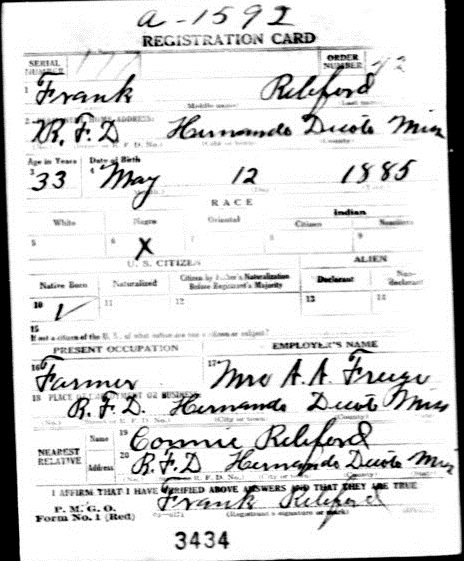 a-1592
REGISTRATION CARD
SERIAL NUMBER ORDER NUMBER
1 Frank Reliford
(Middle name)
2 HOME ADDRESS:
R. F. D Hernando Desoto Miss
(No.) (City or town) (County)
Age in Years Date of Birth
3 33 4 May 12 1885
RACE
White Negro Oriental Indian
Citizen Noncitizen
5 6 X 7 8 9
U. S. CITIZEN ALIEN
Native Born Naturalized Citizen by Father's Naturalization Before Registrant's Majority Declarant Non-declarant
10 11 12 13 14
15
If not a citizen of the U. S., of what nation are you a citizen or subject?
PRESENT OCCUPATION EMPLOYER'S NAME
16 Farmer 17 Mrs A. A.
18 PLACE OF EMPLOYMENT OR BUSINESS:
R. F. D. Hernando Desoto Miss
(No.) (City or town) (County)
NEAREST RELATIVE Name 19 Connie Reliford
Address 20 R. F. D Hernando Desoto Miss
I AFFIRM THAT I HAVE VERIFIED ABOVE ANSWERS AND THAT THEY ARE TRUE
P. M. G. O.
Form No. 1 (Red) Frank Reliford
(Registrant's signature or mark)
3434